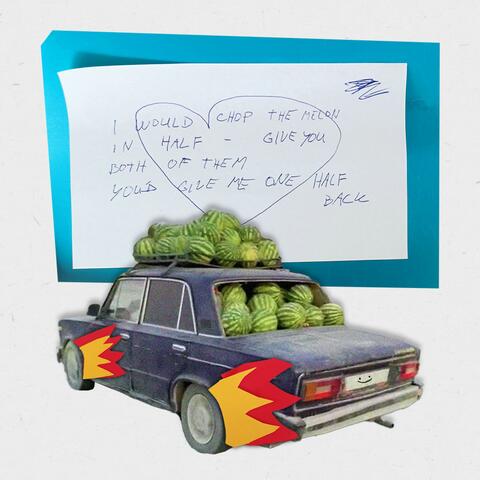 I WOULD CHOP THE MELON
IN HALF - GIVE YOU
BOTH OF THEM
YOU'D GIVE ME ONE HALF
BACK